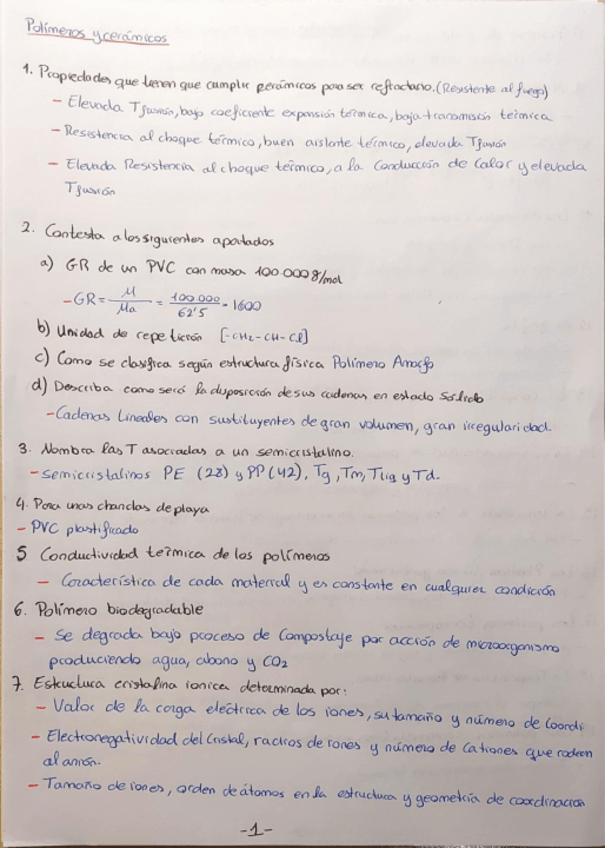 Polímeros y cerámicos
1. Propiedades que tienen que cumplir cerámicos para ser refractario. (Resistente al fuego)
- Elevada Tfusión, bajo coeficiente expansión térmica, baja transmisión térmica
- Resistencia al choque térmico, buen aislante térmico, elevada Tfusión
- Elevada Resistencia al choque térmico, a la conducción de calor y elevada
Tfusión
2. Contesta a los siguientes apartados
a) GR de un PVC con masa 100.000 g/mol
- GR = M/Ma = 100.000/62'5 = 1600
b) Unidad de repetición [-CH2-CH-Cl]
c) Como se clasifica según estructura física Polímero Amorfo
d) Describa como será la disposición de sus cadenas en estado Sólido
- Cadenas Lineales con sustituyentes de gran volumen, gran irregularidad.
3. Nombra las T asociadas a un semicristalino.
- semicristalinos PE (28) y PP (42), Tg, Tm, Tliq y Td.
4. Para unas chanclas de playa
- PVC plastificado
5 Conductividad térmica de los polímeros
- Característica de cada material y es constante en cualquier condición
6. Polímero biodegradable
- Se degrada bajo proceso de compostaje por acción de microorganismo
produciendo agua, abono y CO2
7. Estructura cristalina ionica determinada por:
- Valor de la carga eléctrica de los iones, su tamaño y número de Coordi
- Electronegatividad del Cristal, radios de iones y número de Cationes que rodeen
al anión.
- Tamaño de iones, orden de átomos en la estructura y geometría de coordinación
-1-